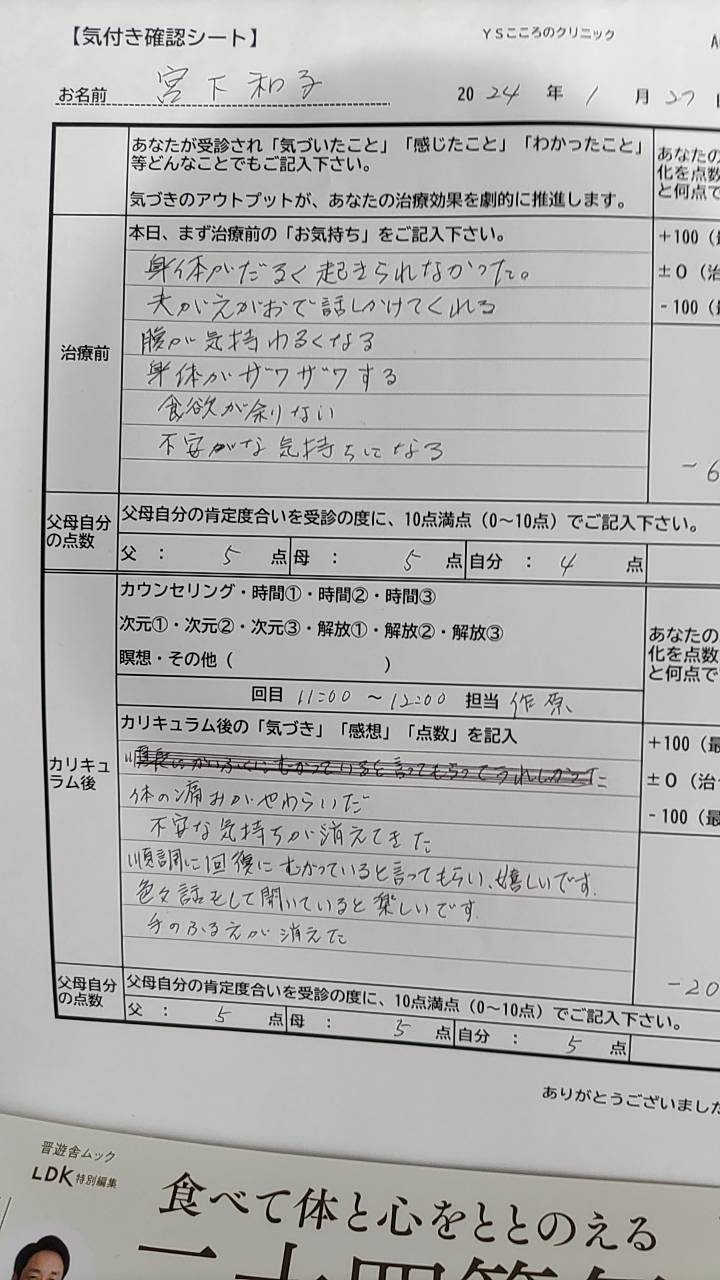 【気付き確認シート】
YSこころのクリニック
お名前 宮下和子 2024年1月27
あなたが受診され「気づいたこと」「感じたこと」「わかったこと」
等どんなことでもご記入下さい。
気づきのアウトプットが、あなたの治療効果を劇的に推進します。
あなたの
化を点数
と何点で
治療前
本日、まず治療前の「お気持ち」をご記入下さい。
身体がだるく起きられなかった。
夫がえがおで話しかけてくれる
腹が気持わるくなる
身体がザワザワする
食欲が余りない
不安がな気持ちになる
+100(最
±0(治
-100(最
-6
父母自分
の点数
父母自分の肯定度合いを受診の度に、10点満点(0~10点)でご記入下さい。
父: 5 点 母: 5 点 自分: 4 点
カリキュ
ラム後
カウンセリング・時間①・時間②・時間③
次元①・次元②・次元③・解放①・解放②・解放③
瞑想・その他( )
回目 11:00 ~12:00 担当 作原
あなたの
化を点数
と何点で
カリキュラム後の「気づき」「感想」「点数」を記入
体の痛みがやわらいだ
不安な気持ちが消えてきた
順調に回復にむかっていると言ってもらい、嬉しいです.
色々話をして聞いていると楽しいです.
手のふるえが消えた
+100(最
±0(治
-100(最
-20
父母自分
の点数
父母自分の肯定度合いを受診の度に、10点満点(0~10点)でご記入下さい。
父: 5 点 母: 5 点 自分: 5 点
ありがとうございました
晋遊舎ムック
LDK特別編集
食べて体と心をととのえる
二十四節気